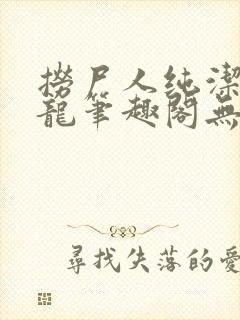 撈尸人純潔
龍筆趣閣無
尋找失落的愛